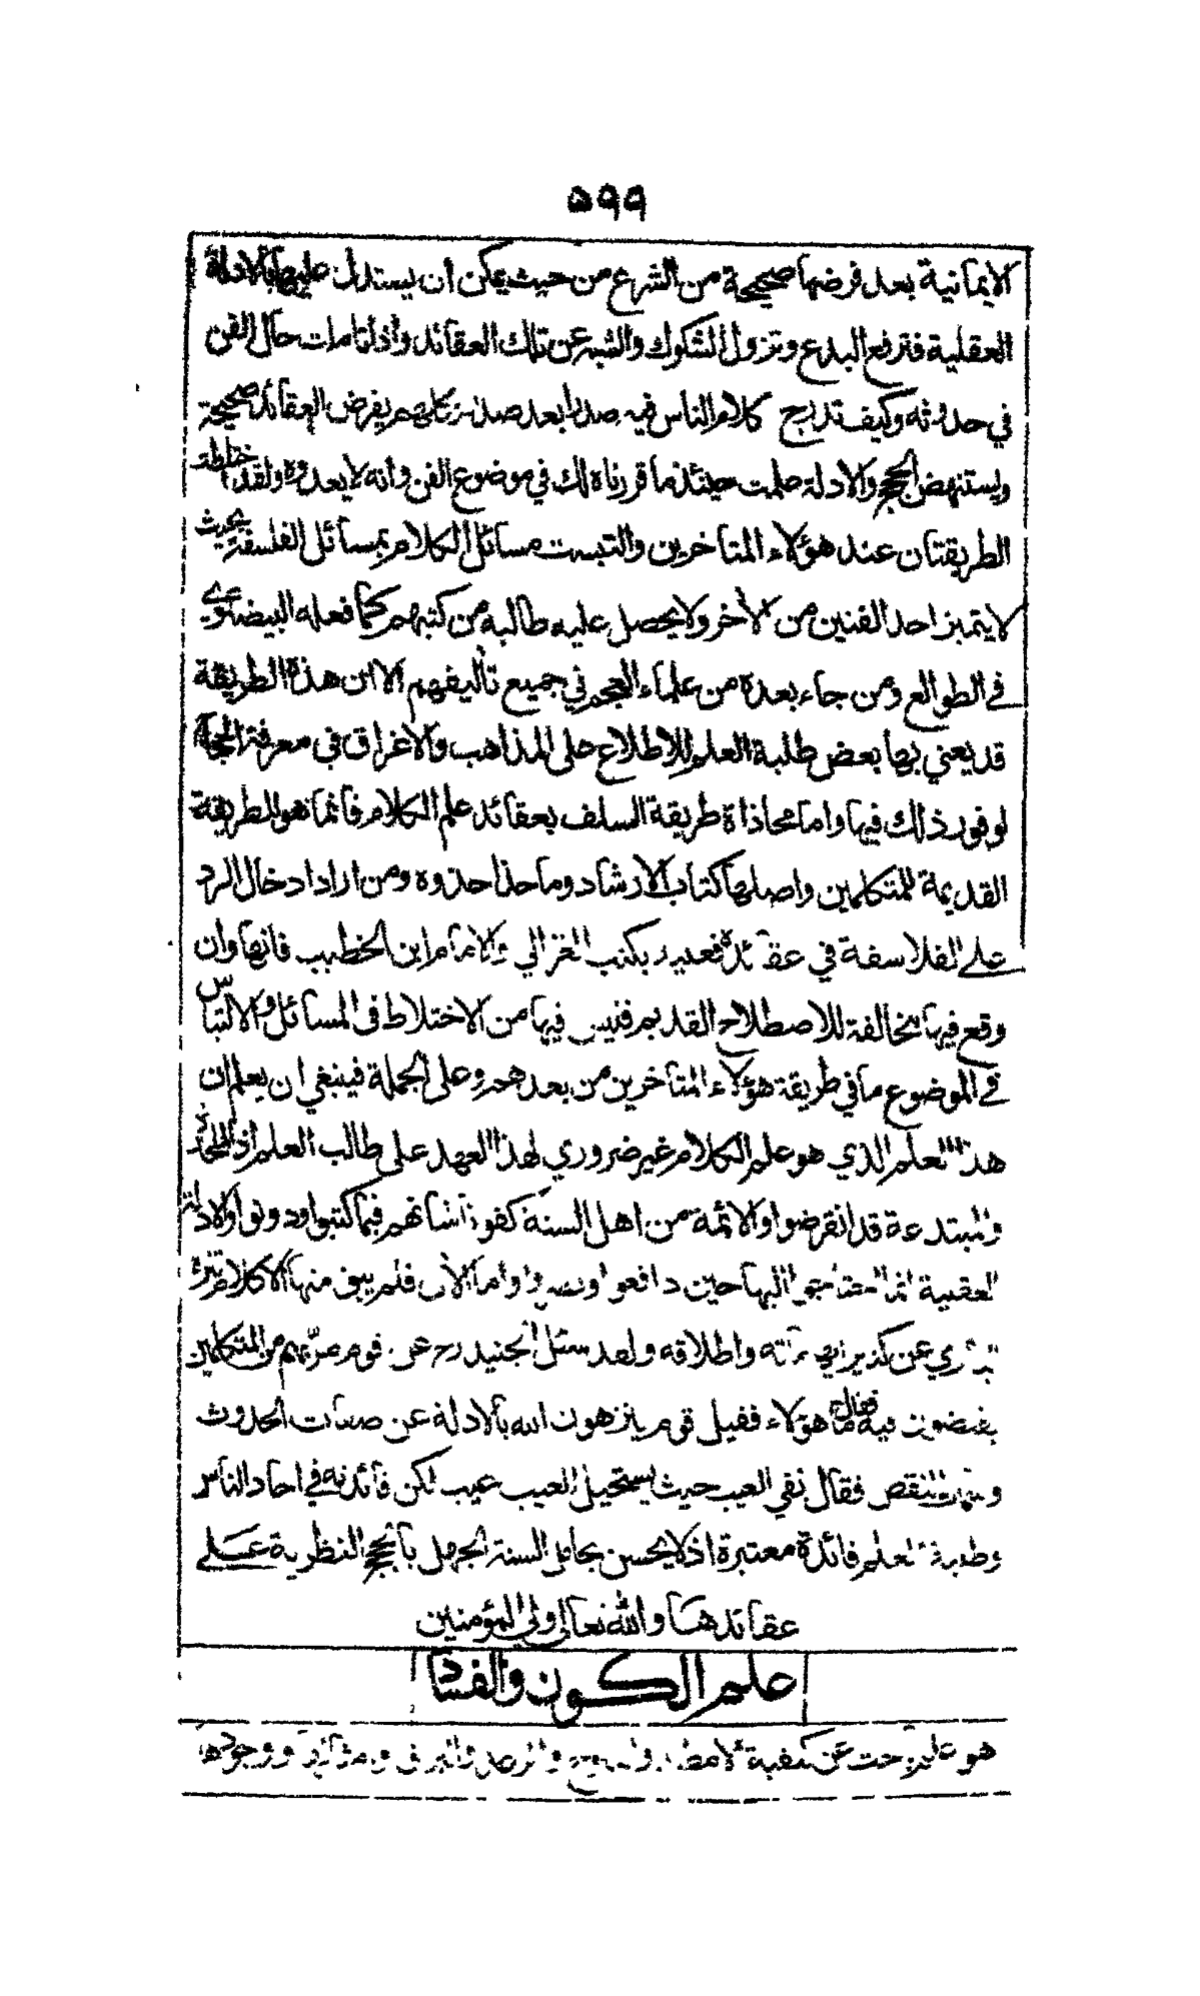 ٥٩٩
الايمانية بعد فرضها صحيحة من الشرع من حيث يمكن أن يستدل عليها بالادلة
العقلية فترفع البدع وتزول الشكوك والشبه عن تلك العقائد وأذا تأملت حال الفن
في حدوثه وكيف تدرج كلام الناس فيه صدرا بعد صدر وكلهم يفرض العقائد صحيحة
ويستنهض الحجج والادلة علمت حينئذ ما قررناه لك في موضوع الفن وأنه لا يعدوه ولقد اختلطت
الطريقتان عند هؤلاء المتاخرين والتبست مسائل الكلام بمسائل الفلسفة بحيث
لا يتميز احد الفنين من الأخر ولا يحصل عليه طالبه من كتبهم كما فعله البيضاوي
في الطوالع ومن جاء بعده من علماء العجم في جميع تأليفهم الا ان هذه الطريقة
قد يعني بها بعض طلبة العلم للاطلاع على المذاهب والاغراق في معرفة الحجاج
لوفور ذلك فيها واما محاذاة طريقة السلف بعقائد علم الكلام فانما هو للطريقة
القديمة للمتكلمين واصلها كتاب الارشاد وما حذا حذوه ومن اراد ادخال الرد
على الفلاسفة في عقائده فعليه بكتب الغزالي والامام ابن الخطيب فانها وان
وقع فيها مخالفة للاصطلاح القديم فليس فيها من الاختلاط في المسائل والالتباس
في الموضوع ما في طريقة هؤلاء المتاخرين من بعدهم وعلى الجملة فينبغي ان يعلم ان
هذا العلم الذي هو علم الكلام غير ضروري لهذا العهد على طالب العلم اذ الملحدة
والمبتدعة قد انقرضوا والائمة من اهل السنة كفونا شانهم فيما كتبوا ودونوا والادلة
العقلية انما احتاجوا اليها حين دافعوا ونصروا واما الأن فلم يبق منها الا كلام تنزه
الباري عن كثير ايهاماته واطلاقه ولقد سئل الجنيد رح عن قوم مر بهم من المتكلمين
يفيضون فيه فقال ما هؤلاء فقيل قوم ينزهون الله بالادلة عن صفات الحدوث
وسمات النقص فقال نفي العيب حيث يستحيل العيب عيب لكن فائدته في احاد الناس
وطلبة العلم فائدة معتبرة اذ لا يحسن بحامل السنة الجهل بالحجج النظرية على
عقائدها والله تعالى ولي المؤمنين
علم الكون والفساد
هو علم يبحث عن كيفية